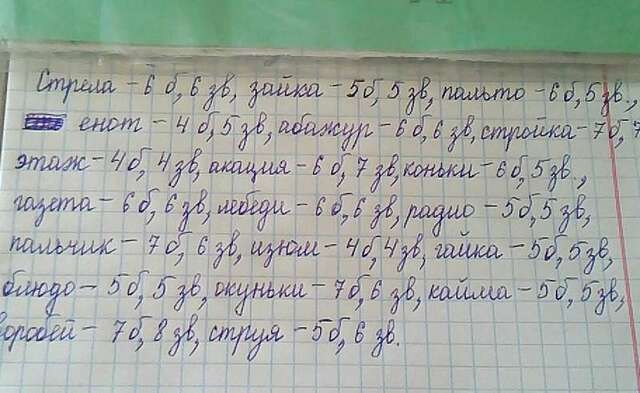 Стрела – 6 б, 6 зв, зайка – 5б, 5 зв, пальто – 6б, 5 зв.,
енот – 4 б, 5 зв, абажур – 6б, 6 зв, стройка – 7б, 7
этаж – 4б, 4 зв, акация – 6 б, 7 зв, коньки – 6б, 5 зв.,
газета – 6 б, 6 зв, лебеди – 6б, 6 зв, радио – 5б, 5 зв,
пальчик – 7б, 6 зв, изюм – 4б, 4зв, гайка – 5б, 5зв,
блюдо – 5б, 5 зв, окуньки – 7б, 6 зв, кайма – 5б, 5зв,
оробей – 7б, 8 зв, струя – 5б, 6 зв.